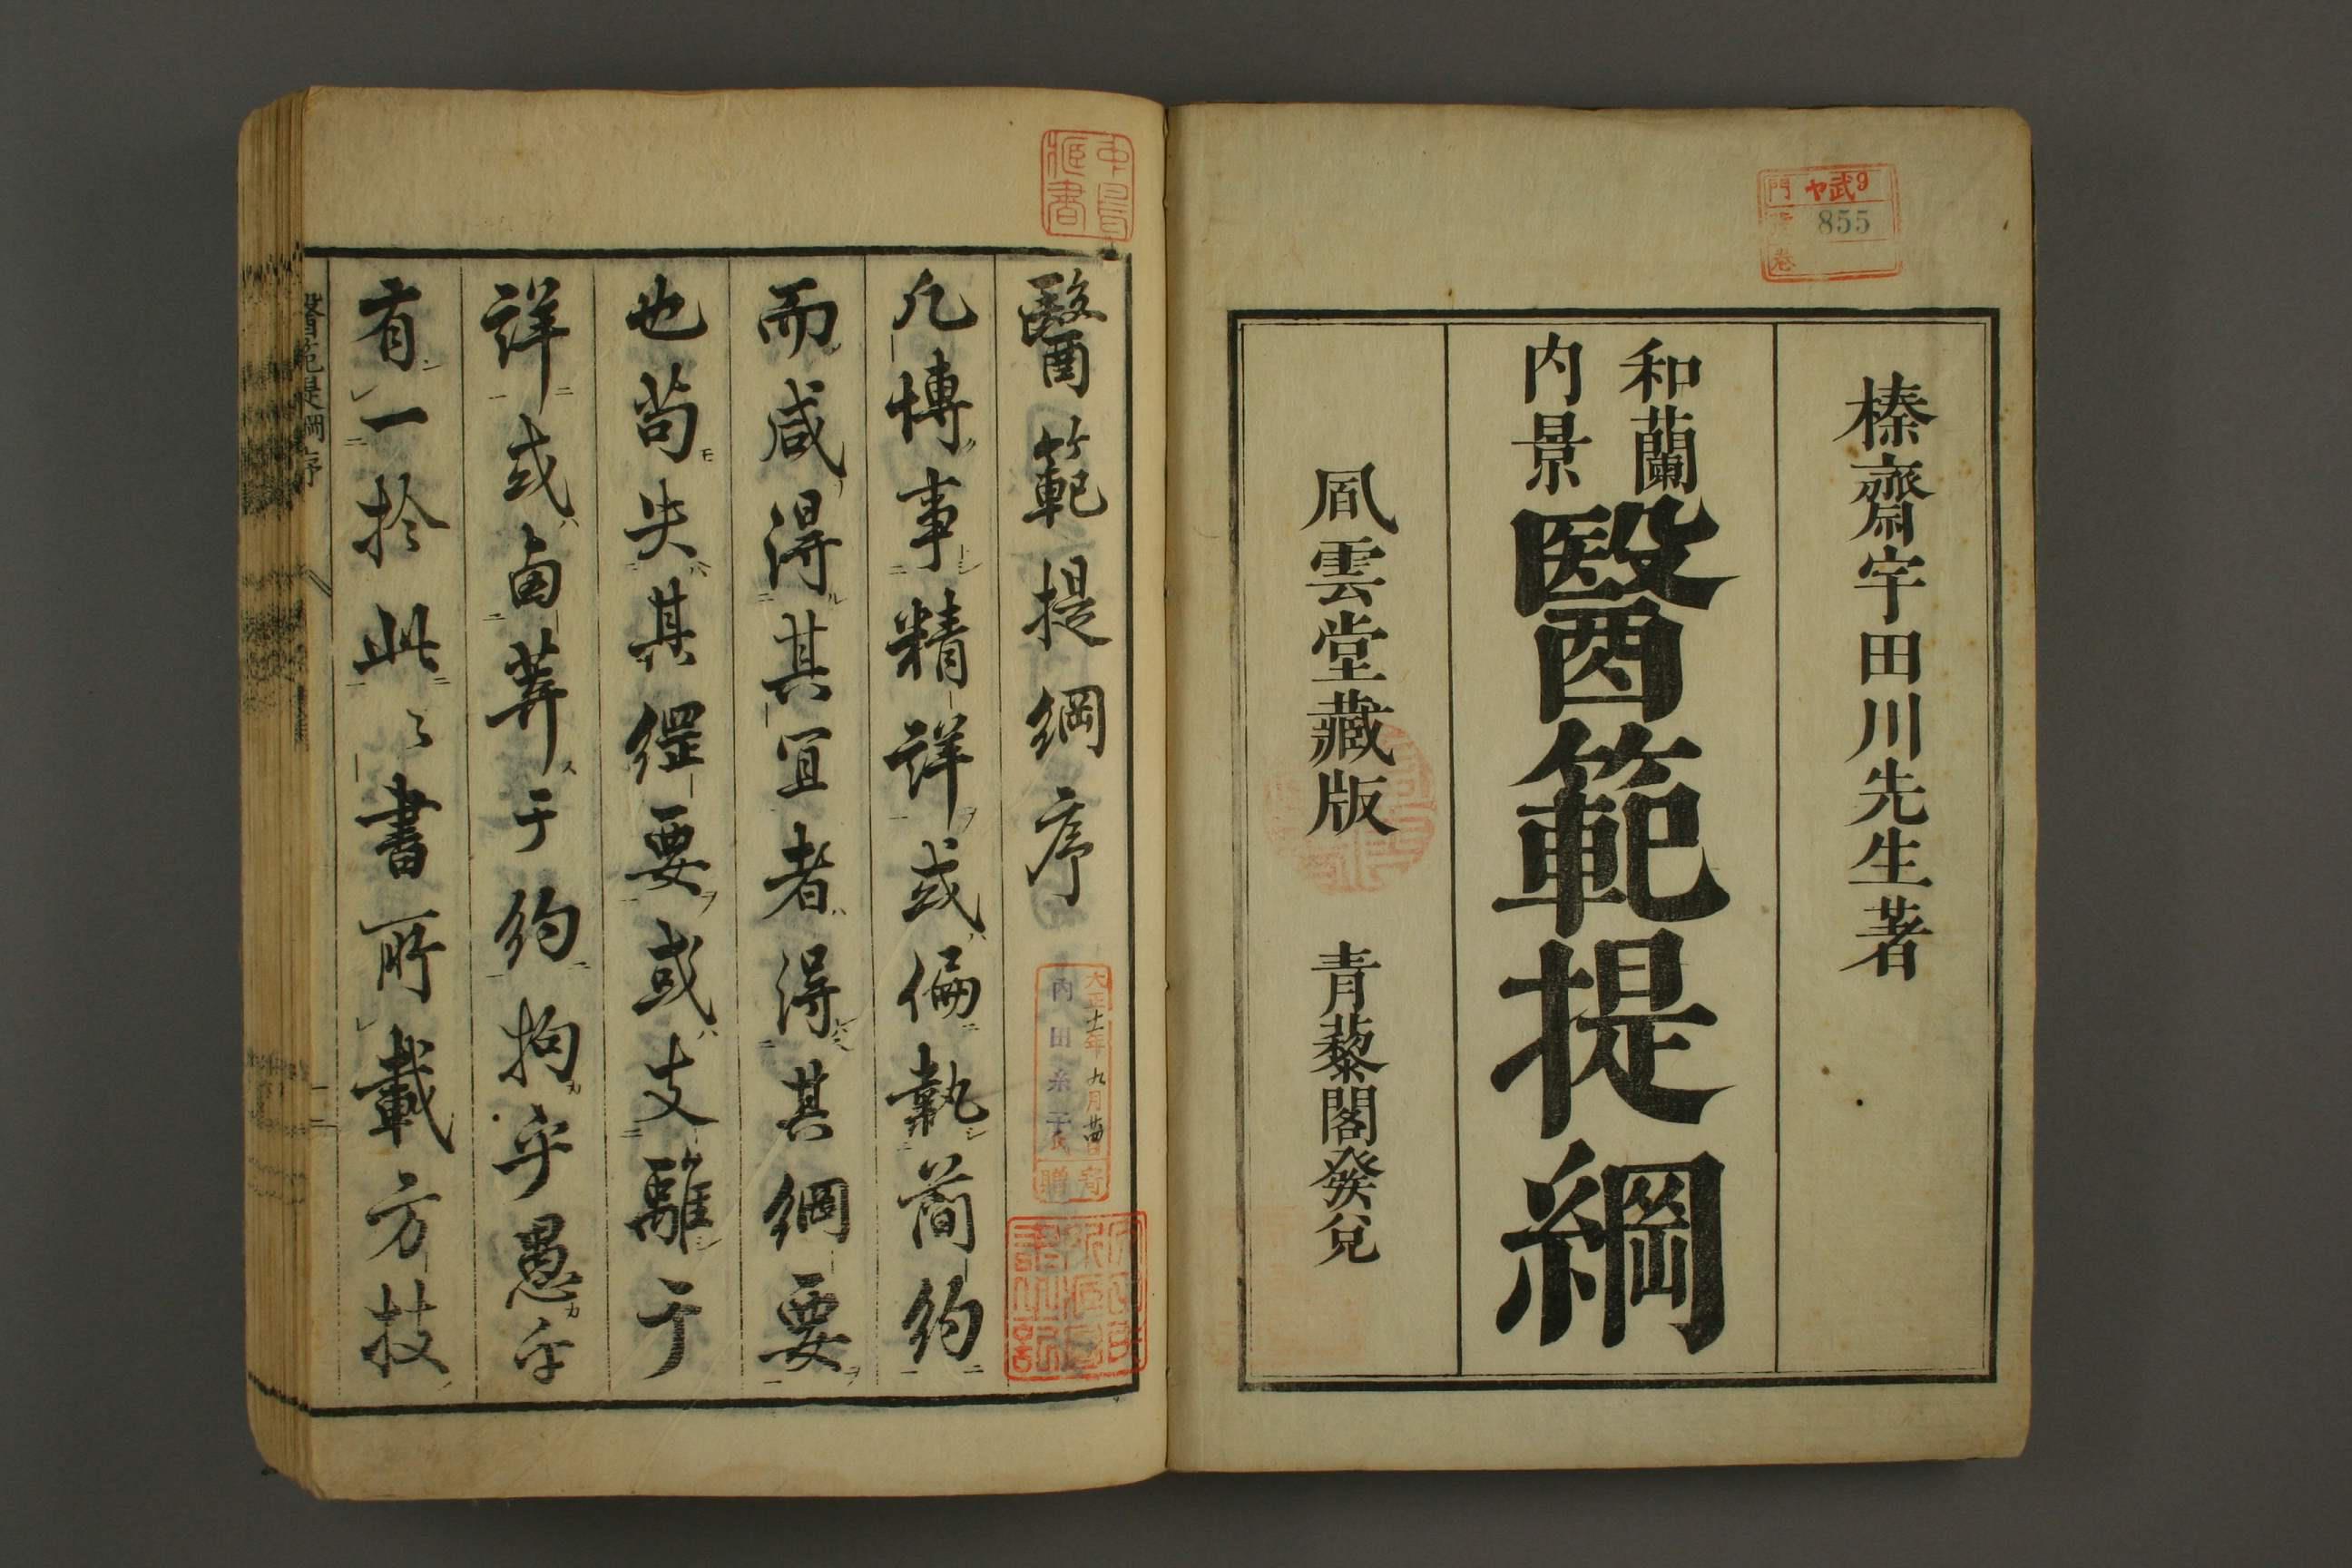 ヤ武9
855
門
巻
榛齋宇田川先生著
和蘭
内景
醫範提綱
風雲堂藏版 青藜閣發兌
醫範提綱序
大正十一年九月
内田
寄贈
凡博事精詳或偏執簡約
而咸得其宜者得其綱要
也苟失其綱要或支離于
詳或鹵莽于約拘乎愚乎
有一於此之書所載方技
醫範提綱序